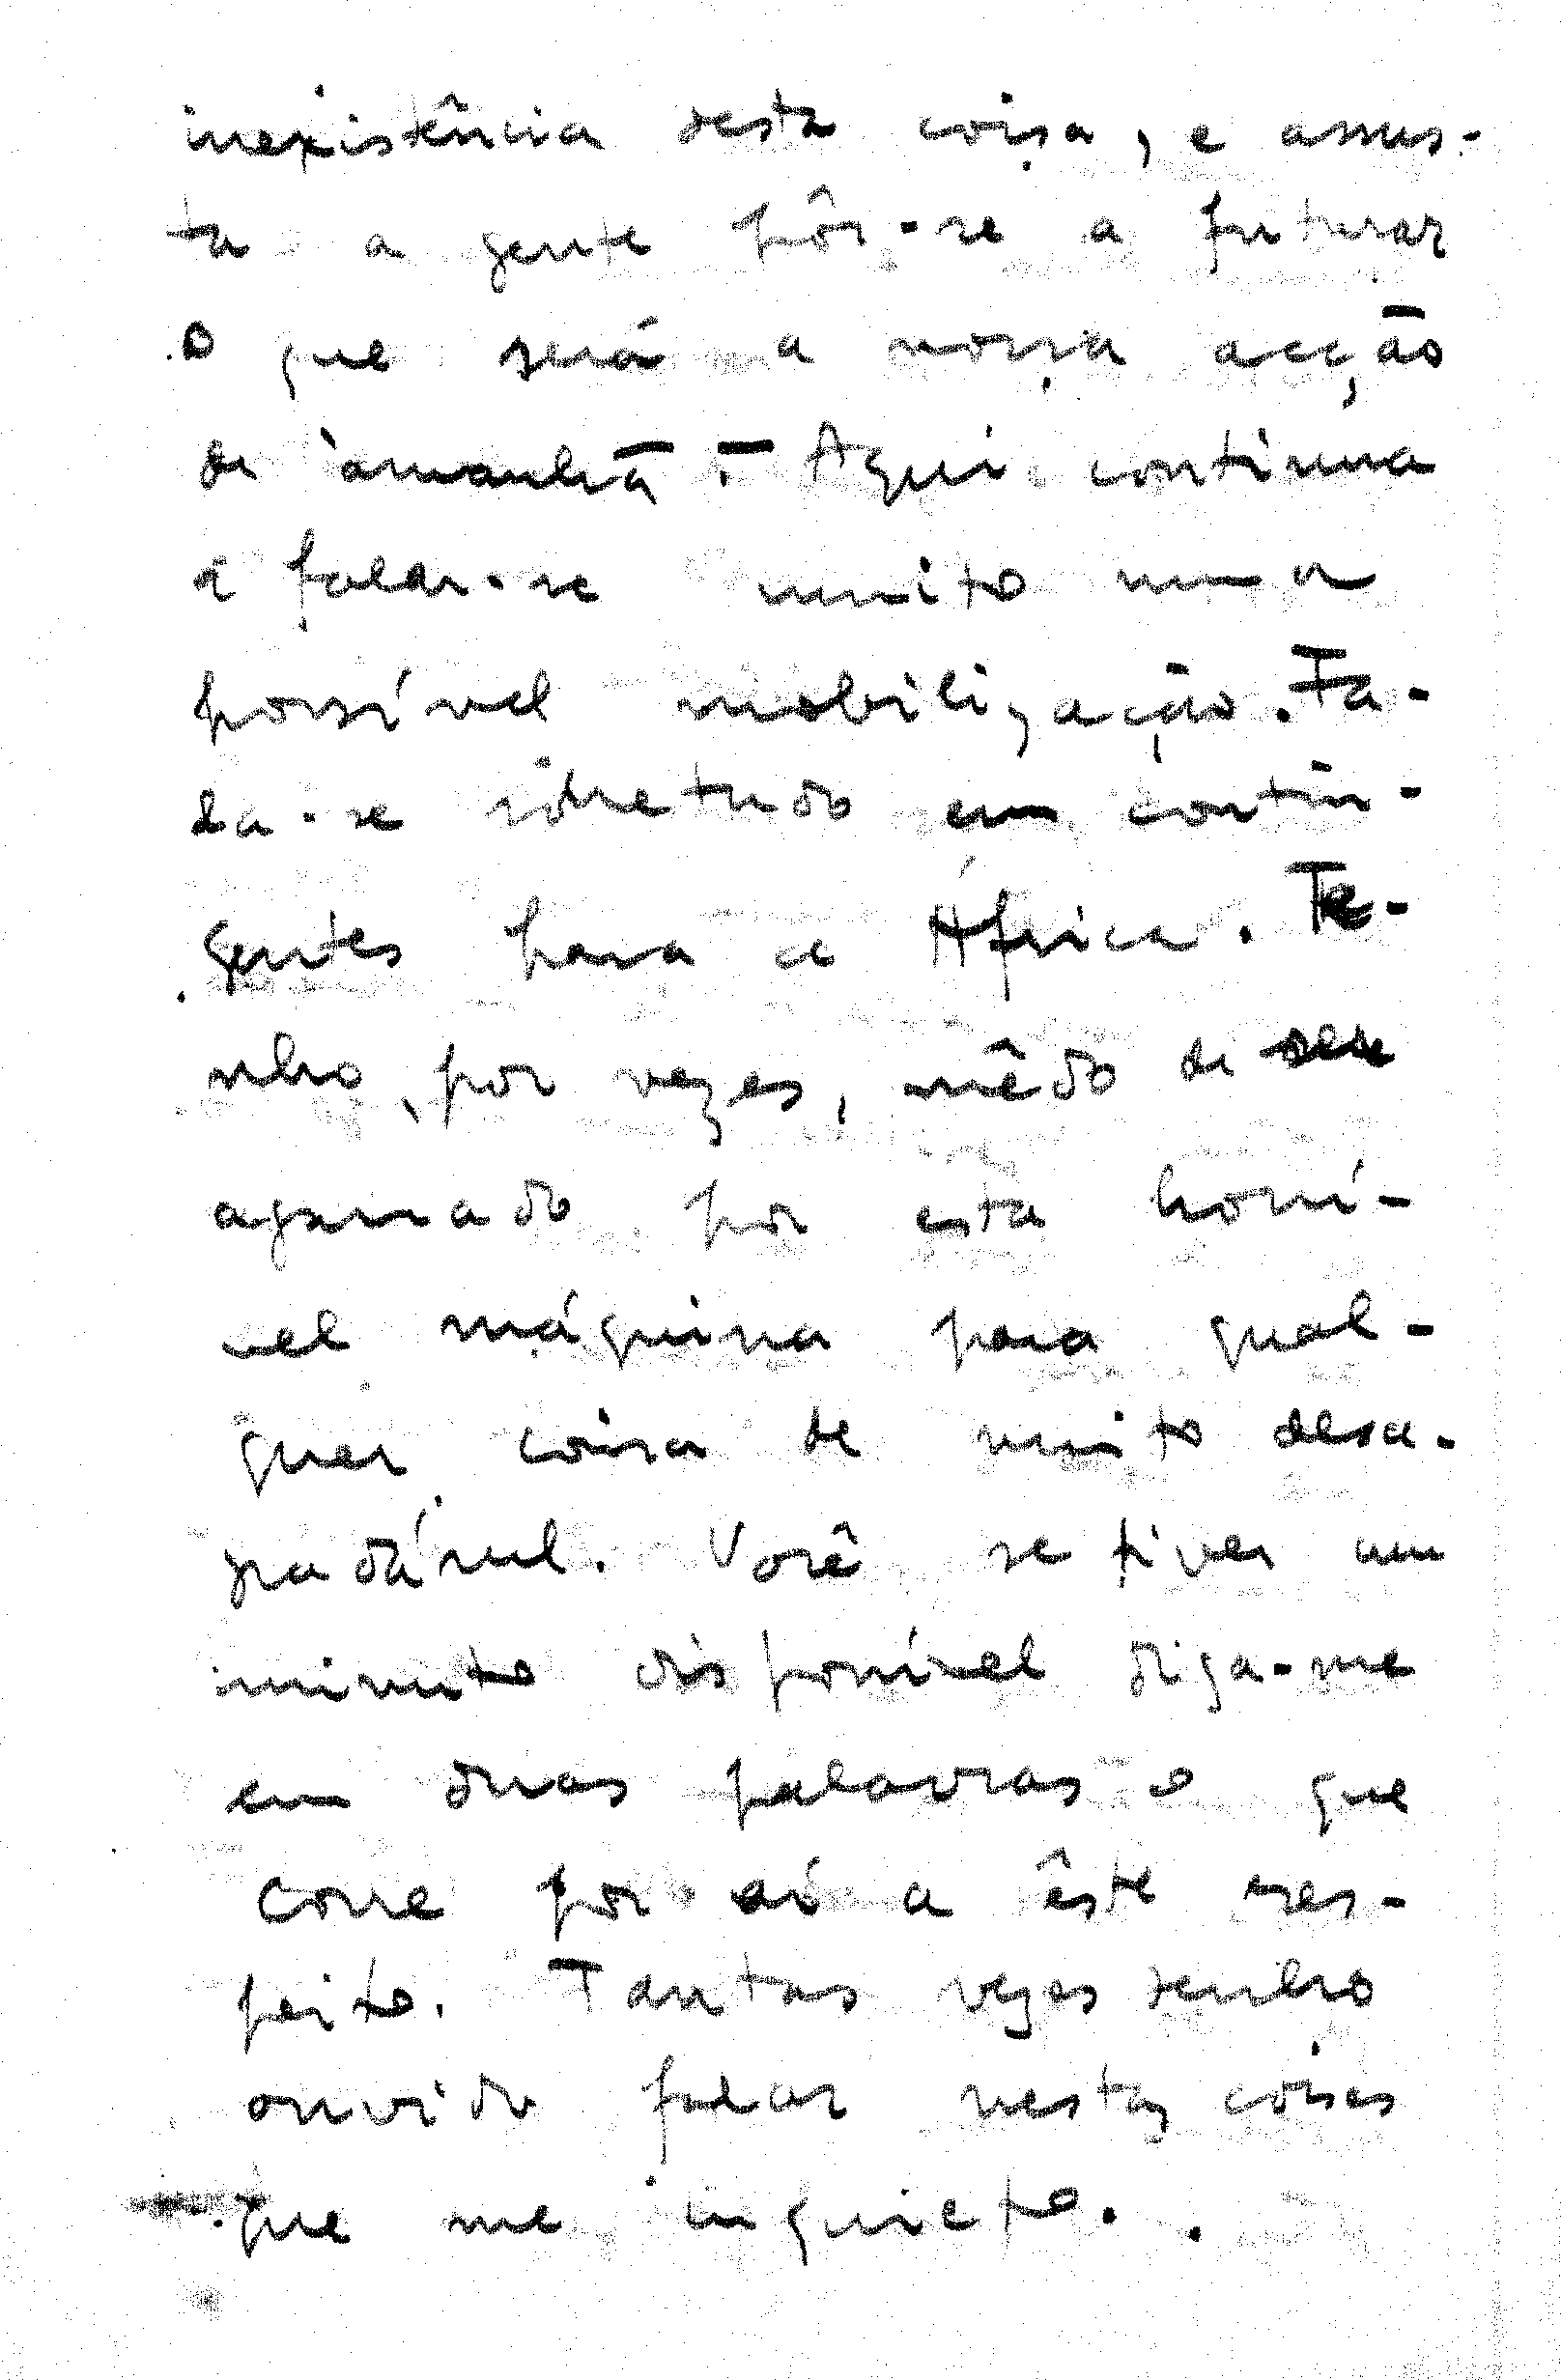 inexistência desta coisa, e assus-
ta a gente pôr-se a futurar
o que será a nossa acção
de àmanhã. - Aqui continua
a falar-se muito numa
possível mobilização. Fa-
la-se sôbretudo em contin-
gentes para a África. Te-
nho, por vezes, mêdo de ser
agarrado por esta horrí-
vel máquina para qual-
quer coisa de muito desa-
gradável. Você se tiver um
minuto disponível diga-me
em duas palavras o que
corre por aí a êste res-
peito. Tantas vezes tenho
ouvido falar nestas coisas
que me inquieto.